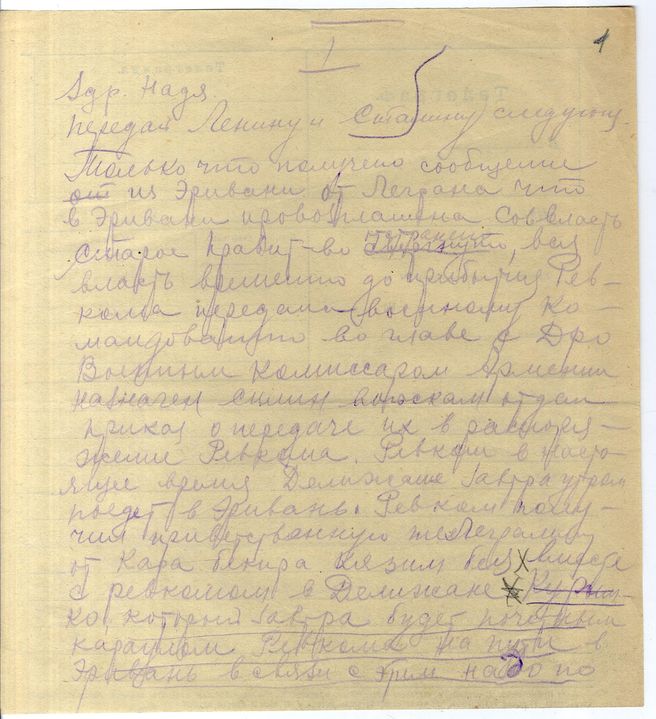 1
1
Здр. Надя.
передай Ленину и Сталину следующее
Только что получено сообщение
от из Эривани от Леграна что
в Эривани провозглашена Соввласть
старое правит-во отстранено, вся
власть временно до прибытия Рев-
кома передана военному Ко-
мандованию во главе с Дро
Военным Комиссаром Армении
назначен Силин войскам отдан
приказ о передаче их в распоря-
жение Ревкома. Ревком в насто-
ящее время Делижане завтра утром
поедет в Эривань. Ревком полу-
чил приветственную телеграмму
от Кара бекира Кязим бея вместе
с ревкомом в Делижане
ко, который завтра будет почетным
караулом Ревкома на пути в
Эривань в связи с этим надо по